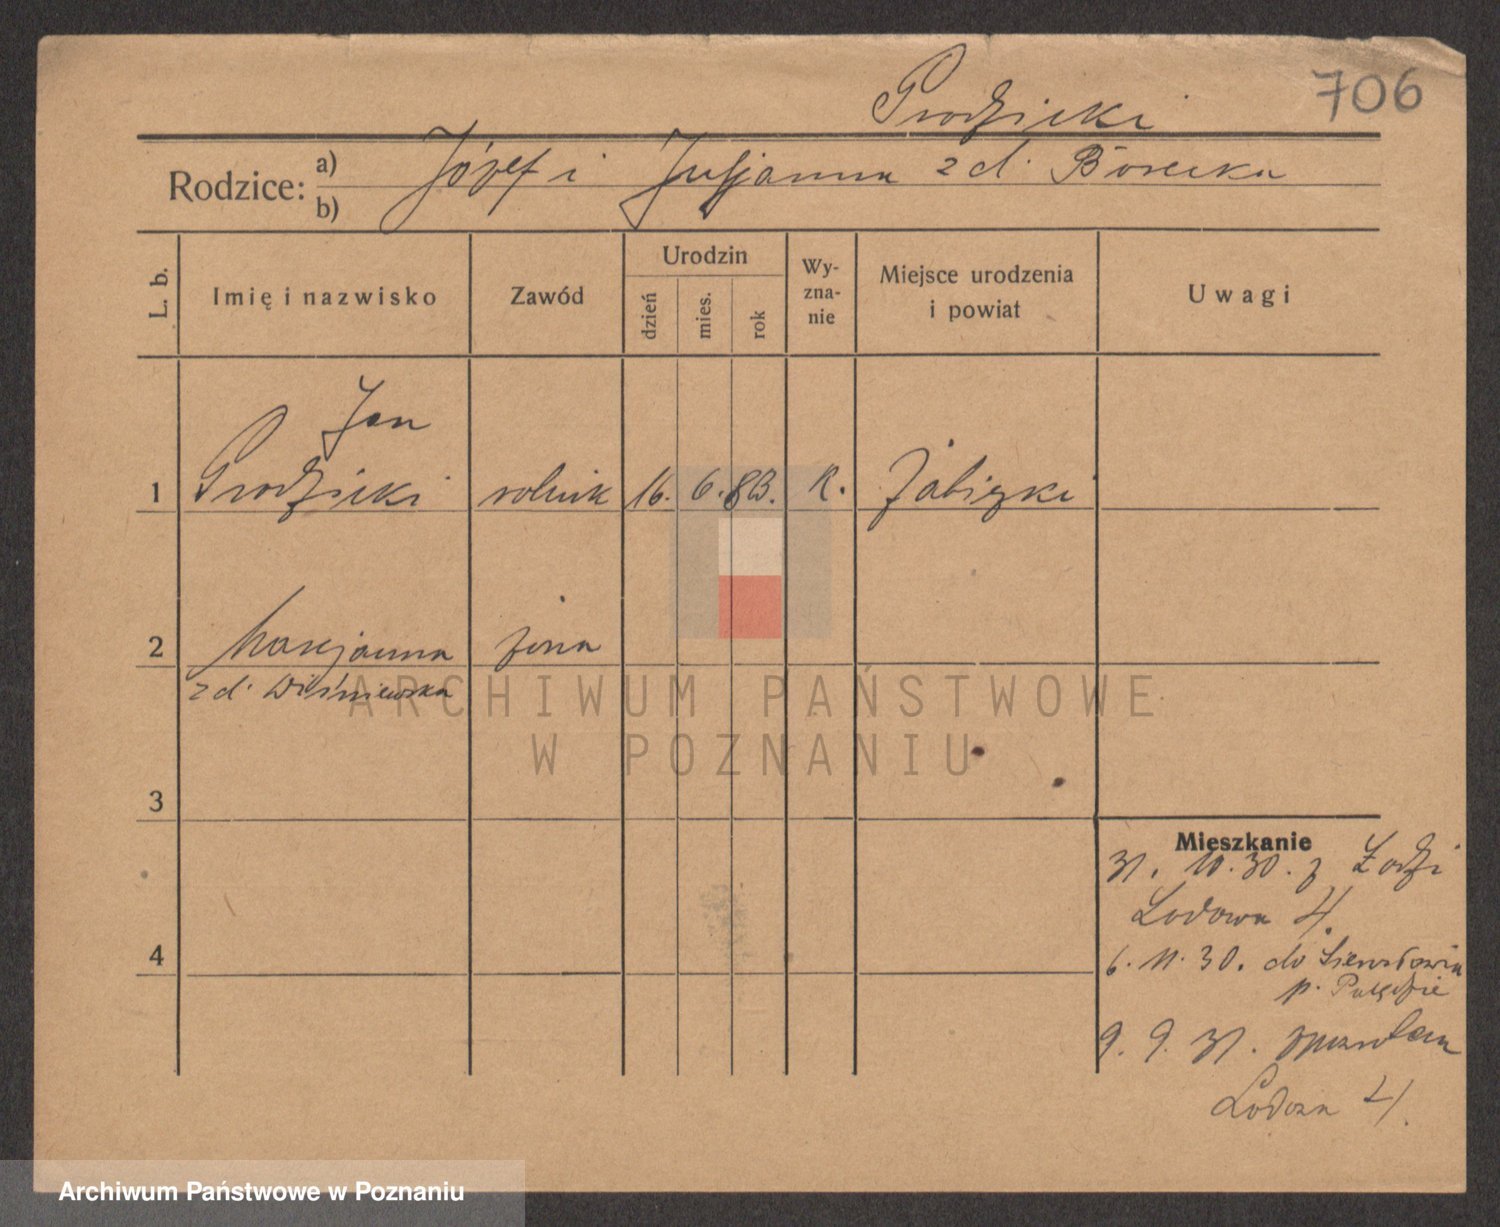 706
Prodzicki
Rodzice: a) b) Józef i Juljanna z d. Borecka
L. b.
Imię i nazwisko
Zawód
Urodzin
dzień
mies.
rok
Wy-
zna-
nie
Miejsce urodzenia
i powiat
Uwagi
Jan
1 Prodzicki rolnik 16. 6. 83. R.
2 Marjanna żona
z d. Wiśniewska
3
4
Mieszkanie
31. 10. 30. z Łodzi
Lodowa 4.
6. 11. 30. do
p.
9. 9. 31.
4.
ARCHIWUM PAŃSTWOWE
W POZNANIU
Archiwum Państwowe w Poznaniu